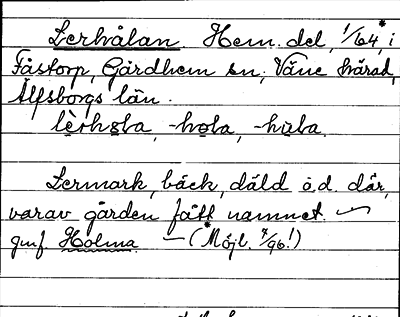 Lerhålan. Hem. del, 1/64* i
Fåstorp, Gärdhem sn, Väne härad,
Älfsborgs län.
lèrhola, -hola, -hùla.
Lermark, bäck, däld o.d. där,
varav gården fått namnet.
jmf. Holma. — (*Möjl. 7/96!)